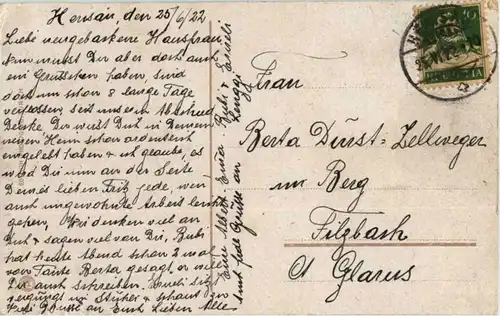 Horisau, den 25/6/22
Liebe neugebackene Hausfrau,
Du aber doch auch
ein Grüsschen haben, sind
doch nun schon 8 lange Tage
verflossen, seit unserm Abschied
Denke, Du wirst Dich in Deinem
neuen Heim schon ordentlich
eingelebt haben & ich glaube, es
wird Dir nun an der Seite
Deines lieben Fritz jede, wenn
auch ungewohnte Arbeit leicht
gehen. Wir denken viel an
Dich & sagen viel von Dir, Rudi
hat heute Abend schon 2 mal
von Tante Berta gesagt, er will
Dir auch schreiben. sitzt
vergnügt im & schaut zu
Grüsse an Euch Lieben Alle
Eure Rudi & Emili
und feste Grüsse an
Frau
Berta Dürst-Zellweger
im Berg
Filzbach
Ct Glarus
10
HELVETIA